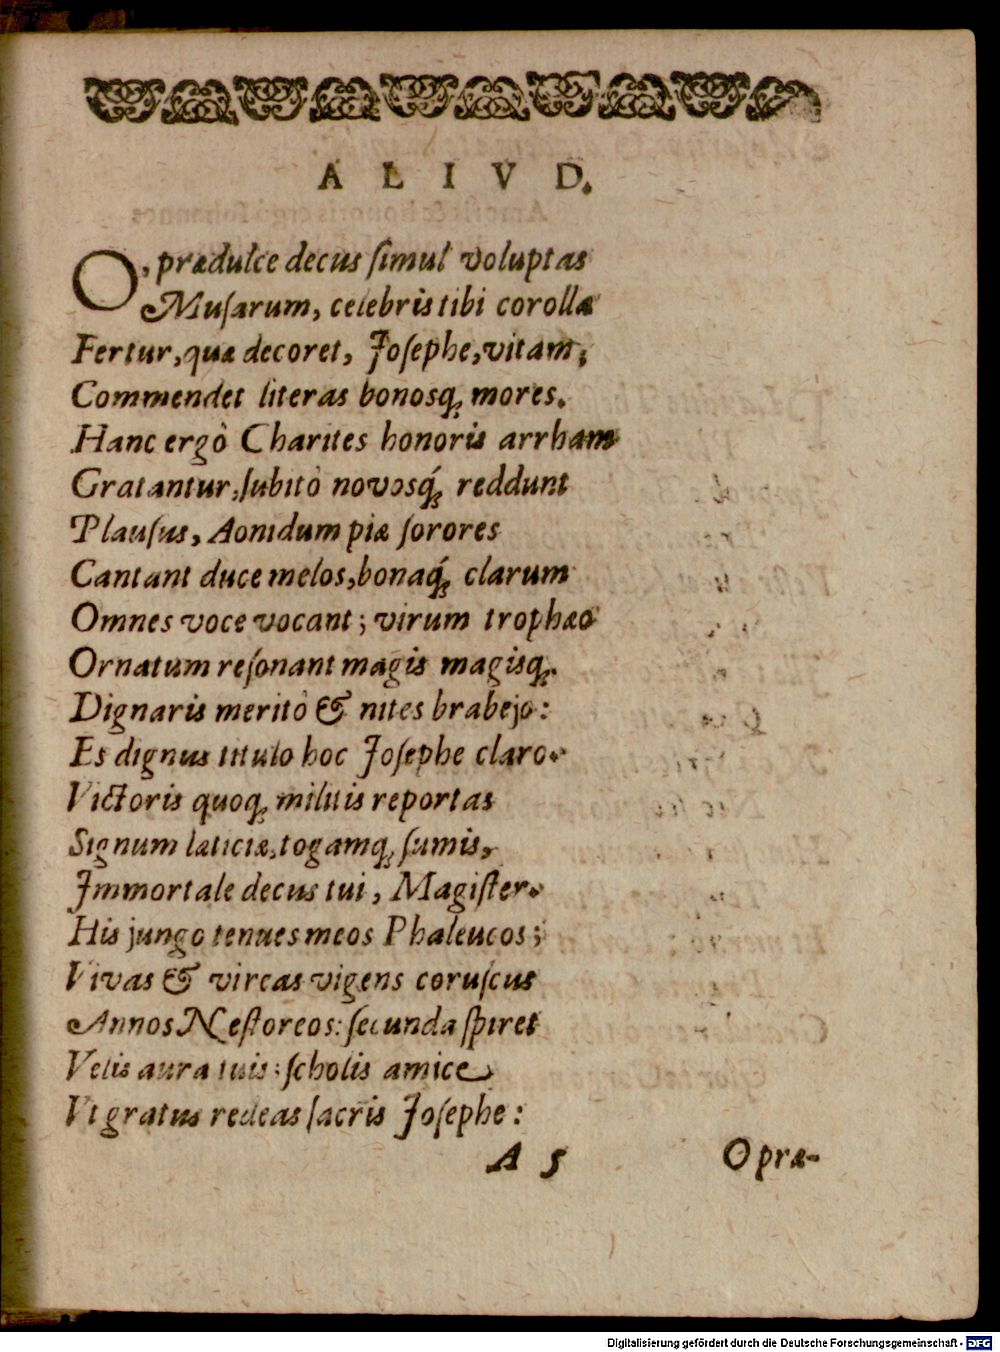 ALIVD.
O, prædulce decus ſimul voluptas
Muſarum, celebris tibi corollæ
Fertur, quæ decoret, Joſephe, vitam;
Commendet literas bonosq; mores.
Hanc ergò Charites honoris arrham
Gratantur, ſubitò novosq́; reddunt
Plauſus, Aonidum piæ ſorores
Cantant duce melos, bonaq́; clarum
Omnes voce vocant; virum trophæo
Ornatum reſonant magis magisq;.
Dignaris meritò & nites brabejo:
Es dignus titulo hoc Joſephe claro.
Victoris quoq; militis reportas
Signum lætitiæ, togamq; ſumis,
Jmmortale decus tui, Magiſter.
His jungo tenues meos Phaleucos;
Vivas & vireas vigens coruſcus
Annos Neſtoreos: ſecunda ſpiret
Velis aura tuis: ſcholis amice
Vt gratus redeas ſacris Joſephe:
A 5 O præ-
Digitalisierung gefördert durch die Deutsche Forschungsgemeinschaft - DFG